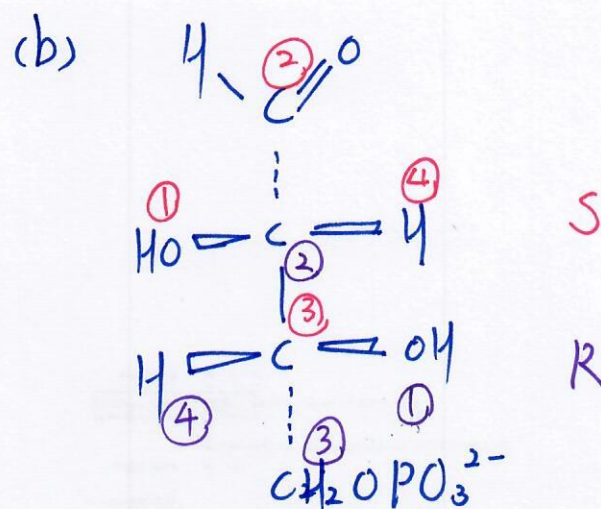 (b) H ② O
C
① ④
HO C H S
②
③
H C OH R
④ ①
③
CH₂OPO₃²⁻